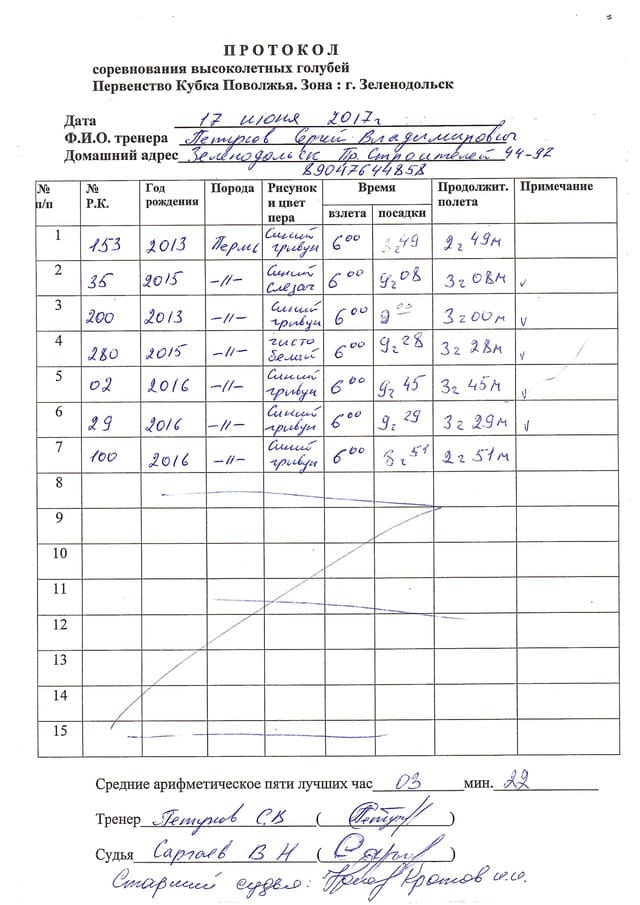 П Р О Т О К О Л
соревнования высоколетных голубей
Первенство Кубка Поволжья. Зона : г. Зеленодольск
Дата 17 июня 2017г
Ф.И.О. тренера Петунов Сергй Владимирович
Домашний адрес Зеленодольск Пр. Строителей 44-92
89047644858
№ п/п № Р.К. Год рождения Порода Рисунок и цвет пера Время взлета посадки Продолжит. полета Примечание
1 153 2013 Пермь Синий гривун 6 00 8г49 2г 49м
2 35 2015 -//- Синий 6 00 9г08 3г 08м √
3 200 2013 -//- Синий гривун 6 00 9 00 3г 00м √
4 280 2015 -//- чисто белай 6 00 9г28 3г 28м √
5 02 2016 -//- Синий гривун 6 00 9г 45 3г 45м √
6 29 2016 -//- Синий гривун 6 00 9г 29 3г 29м √
7 100 2016 -//- Синий гривун 6 00 8г51 2г 51м
8
9
10
11
12
13
14
15
Средние арифметическое пяти лучших час 03 мин. 22
Тренер Петунов С.В ( )
Судья Саргаев В Н ( )
Старший судья: Кротов